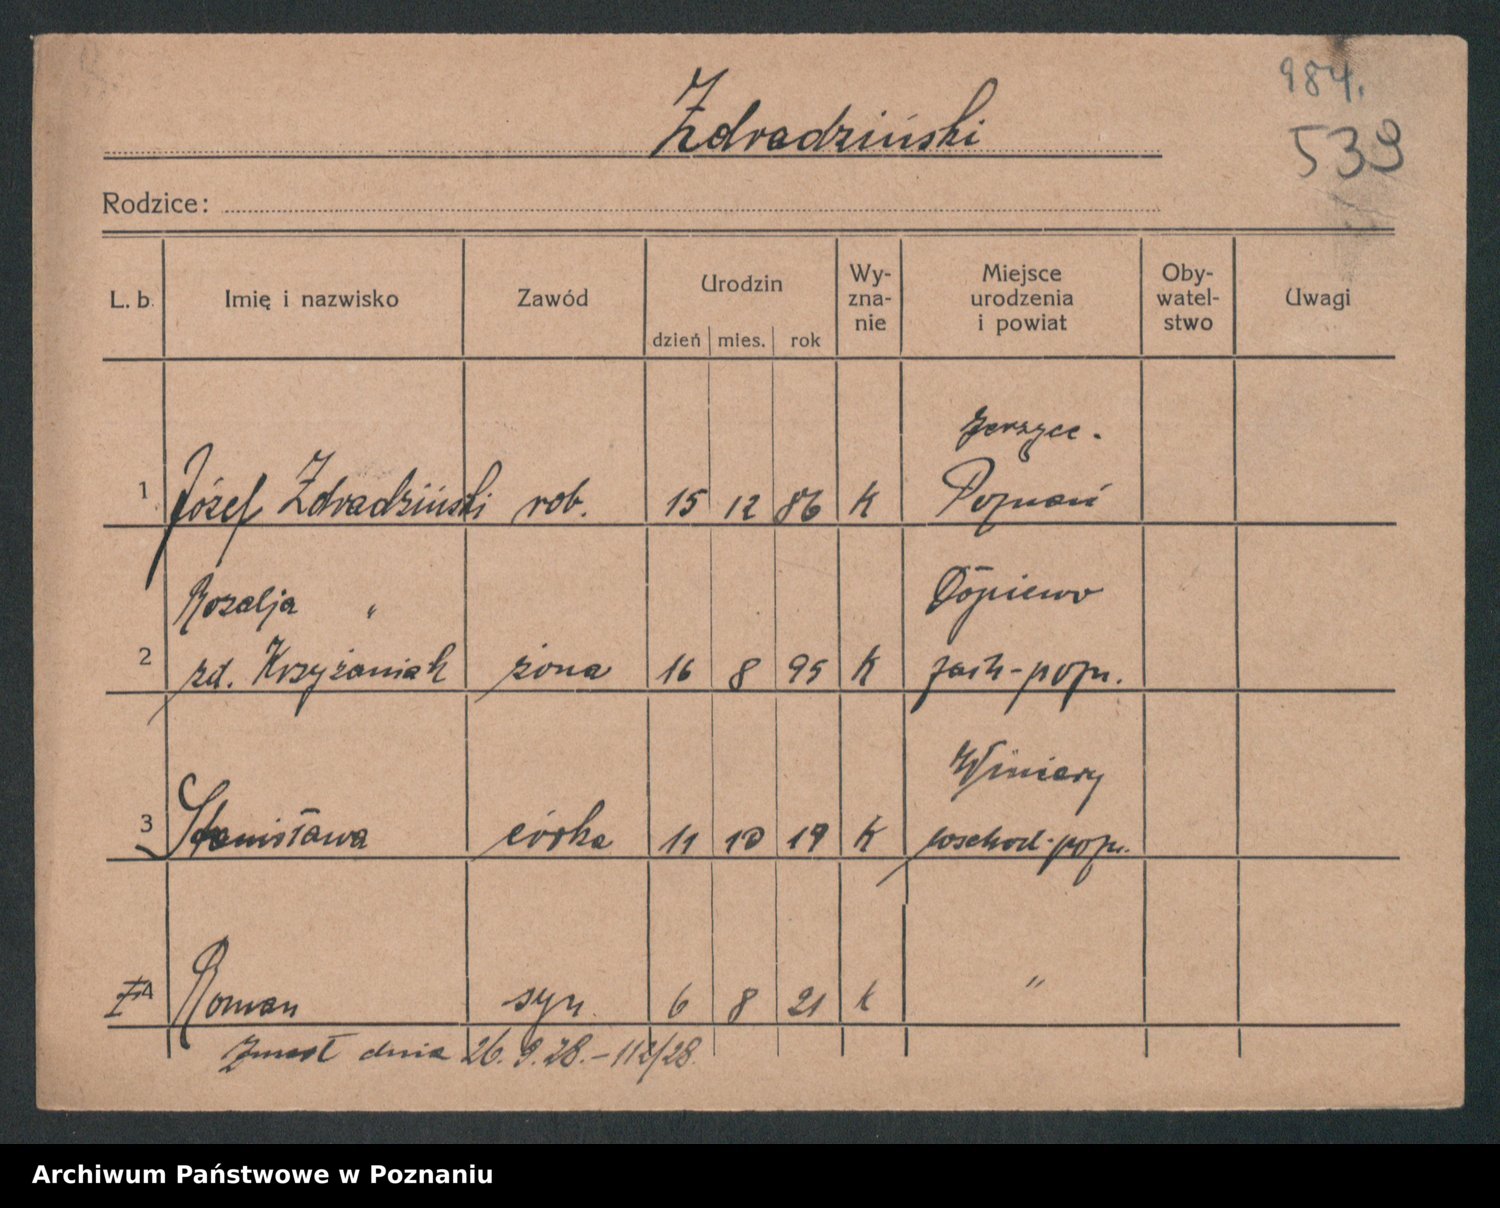 984.
Zdradziński
539
Rodzice:
L. b. Imię i nazwisko Zawód Urodzin dzień mies. rok Wy-zna-nie Miejsce urodzenia i powiat Oby-watel-stwo Uwagi
Jerzyce.
1 Józef Zdradziński rob. 15 12 86 K Poznań
Rozalja " Dopiewo
2 zd. Krzyżaniak żona 16 8 95 K zach-pozn.
Winiary
3 Stanisława córka 11 10 19 K wschod-pozn.
4 Roman syn. 6 8 21 K "
Zmarł dnia 26.9.28.-112/28.
Archiwum Państwowe w Poznaniu